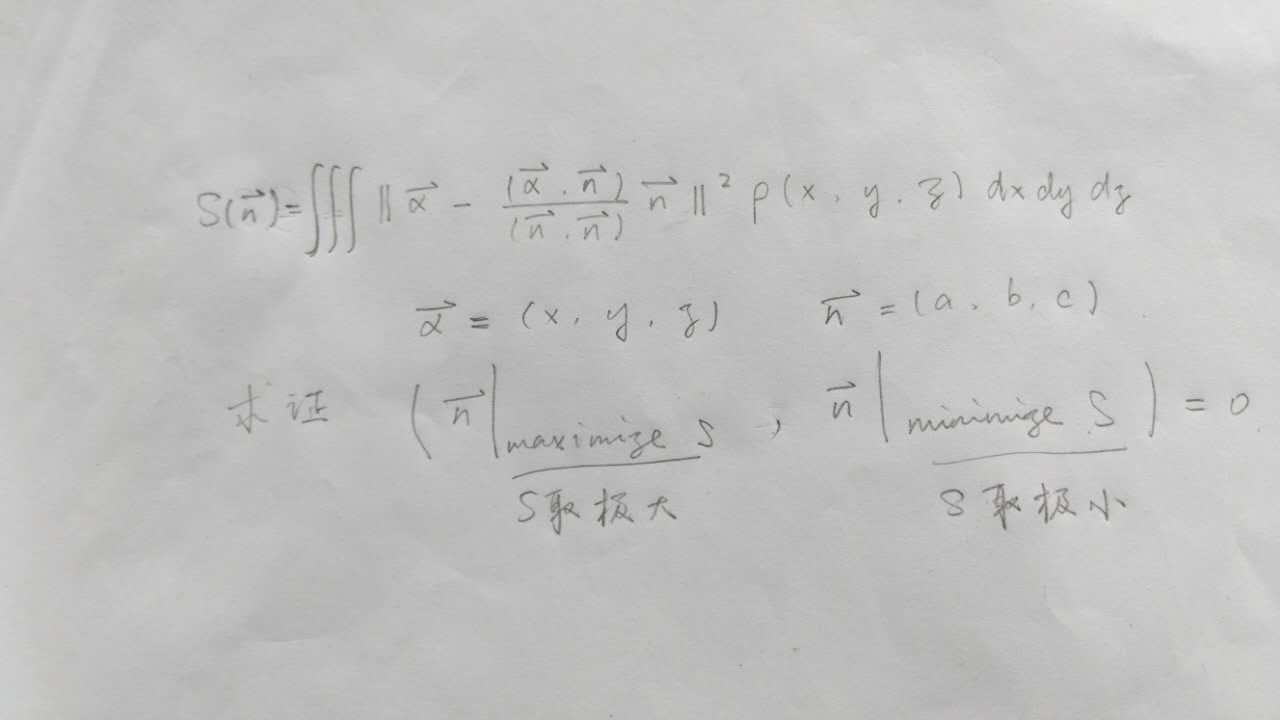 S(n⃗)=∭ ‖ α⃗ - (α⃗ . n⃗)/(n⃗ . n⃗) n⃗ ‖² ρ(x, y, z) dx dy dz
α⃗ = (x, y, z) n⃗ = (a, b, c)
求证 (n⃗|maximize S , n⃗|minimize S) = 0
S取极大 S取极小